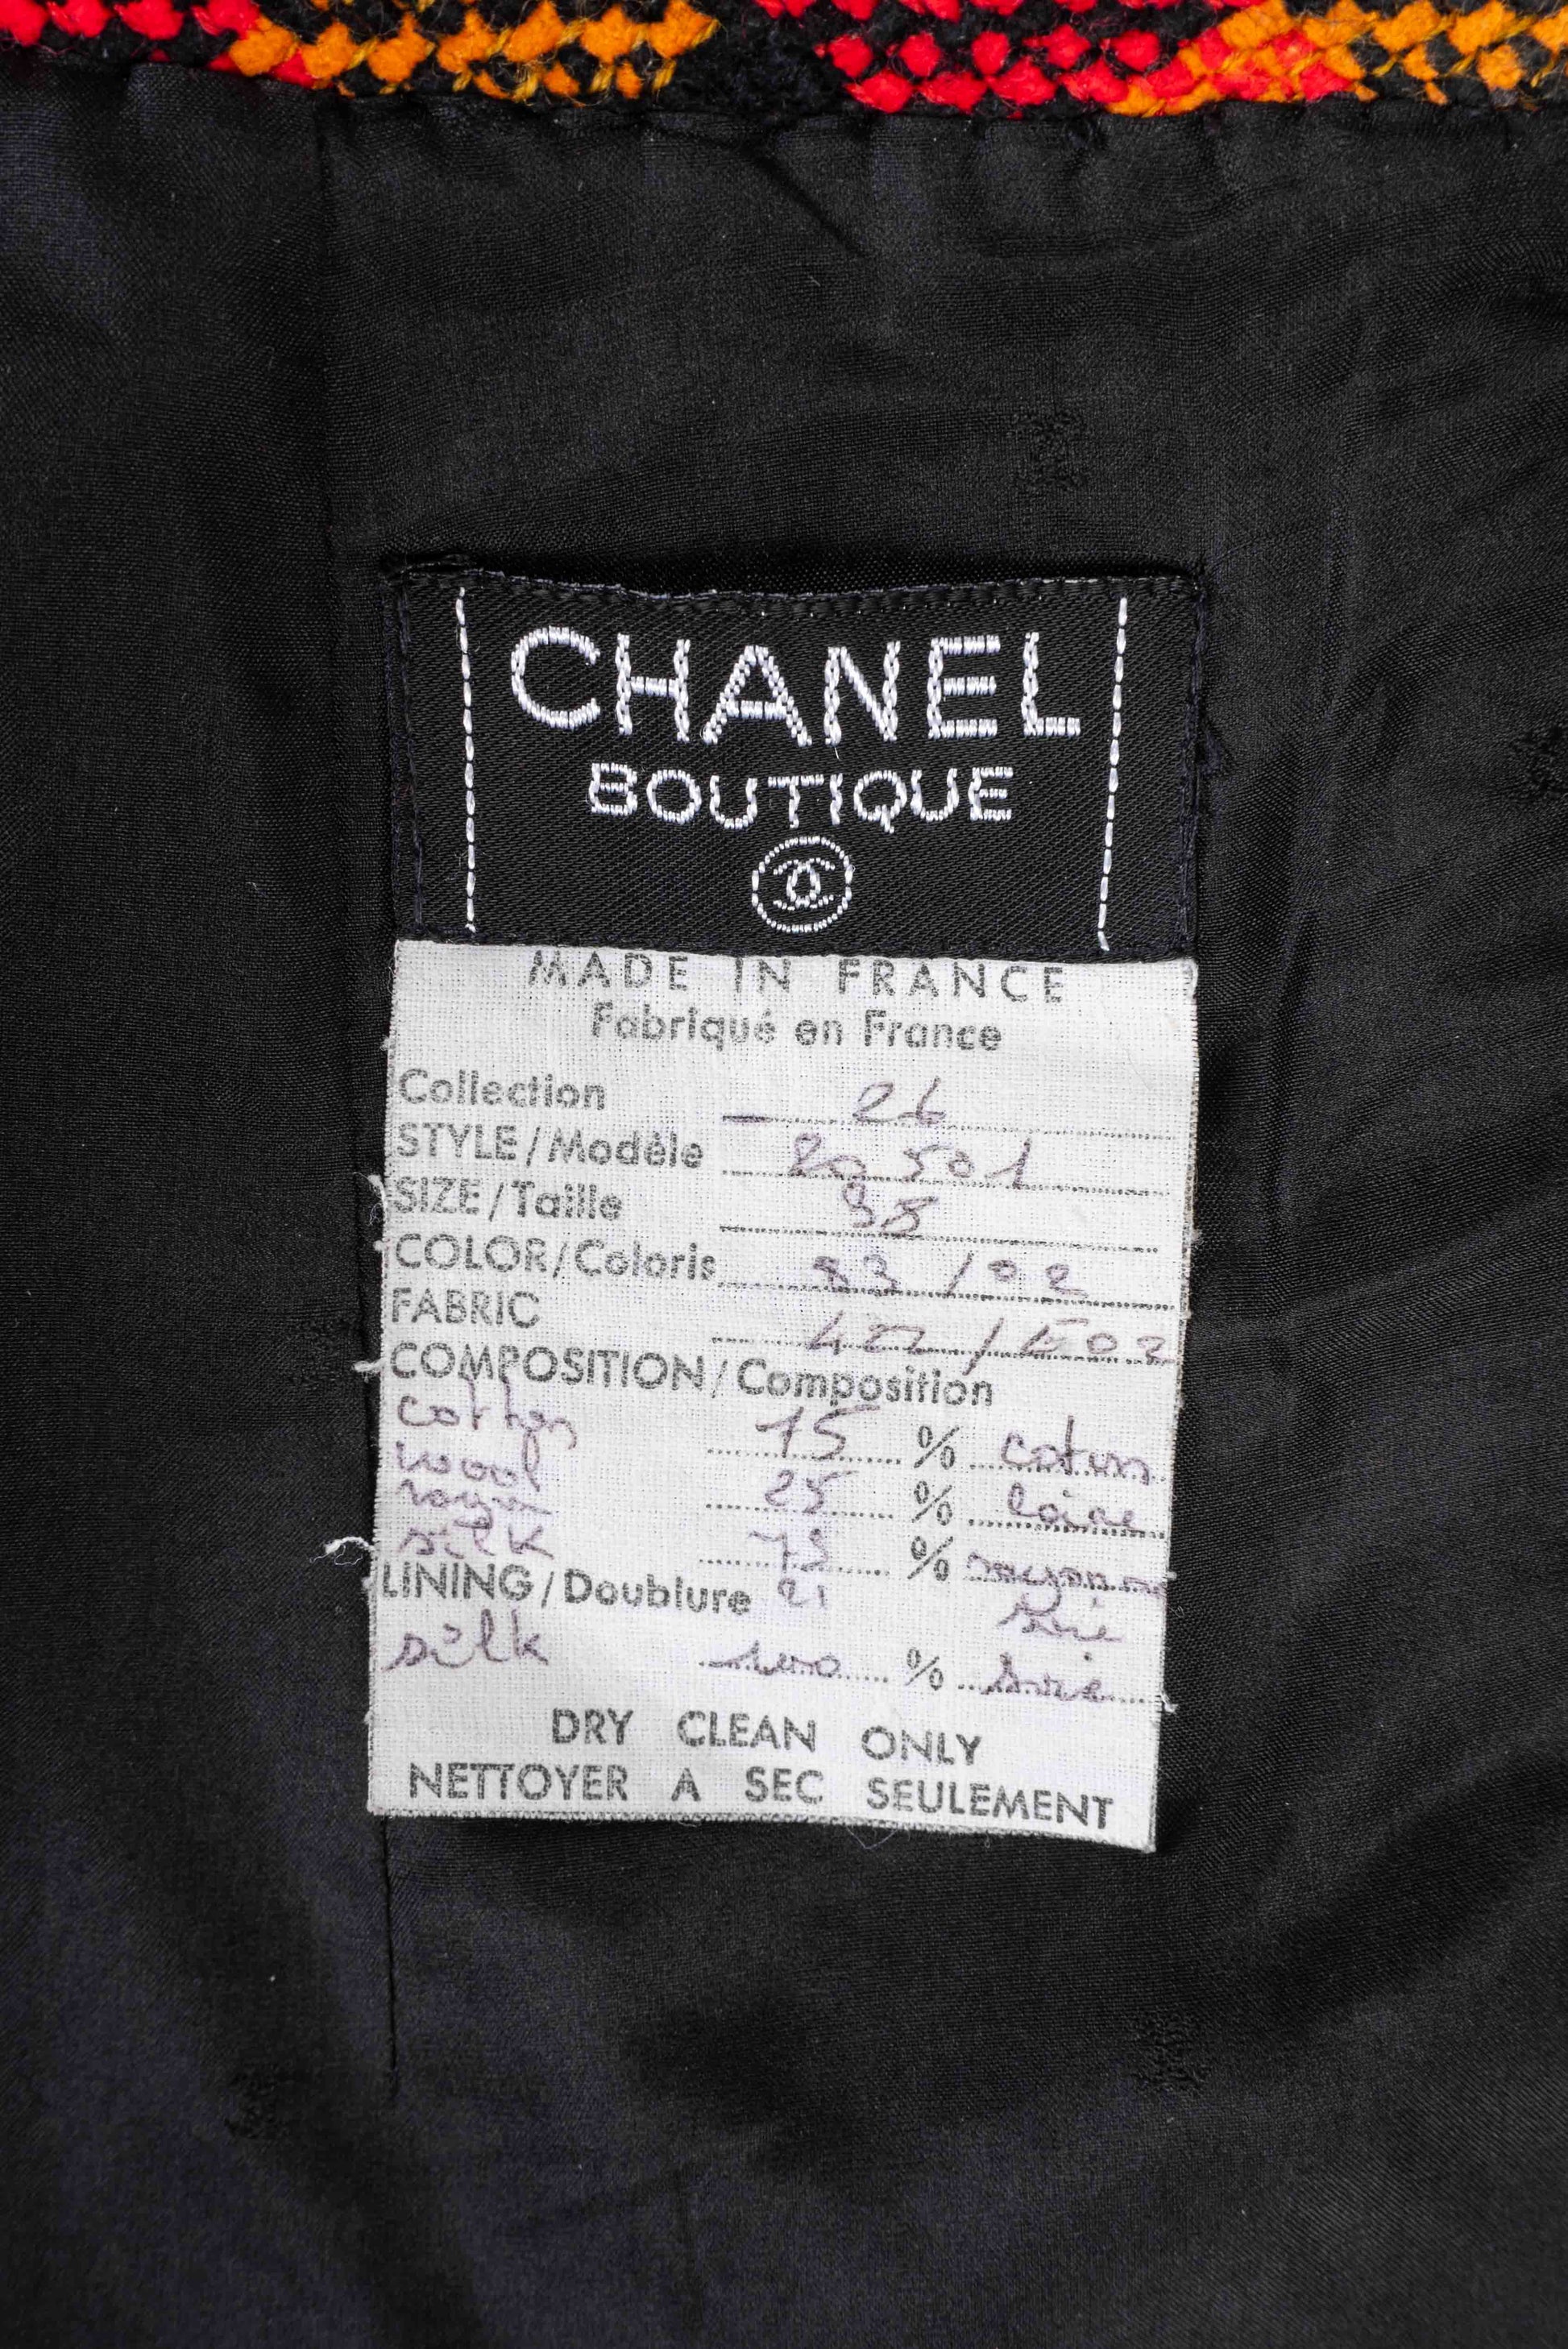 CHANEL
BOUTIQUE
MADE IN FRANCE
Fabriqué en France
Collection 26
STYLE/Modèle 20 501
SIZE/Taille 38
COLOR/Coloris 83 / 02
FABRIC 422 /
COMPOSITION/Composition
cotton 15 % coton
wool 25 % laine
rayon
silk % rayonne
LINING/Doublure 21 soie
silk 100 % soie
DRY CLEAN ONLY
NETTOYER A SEC SEULEMENT